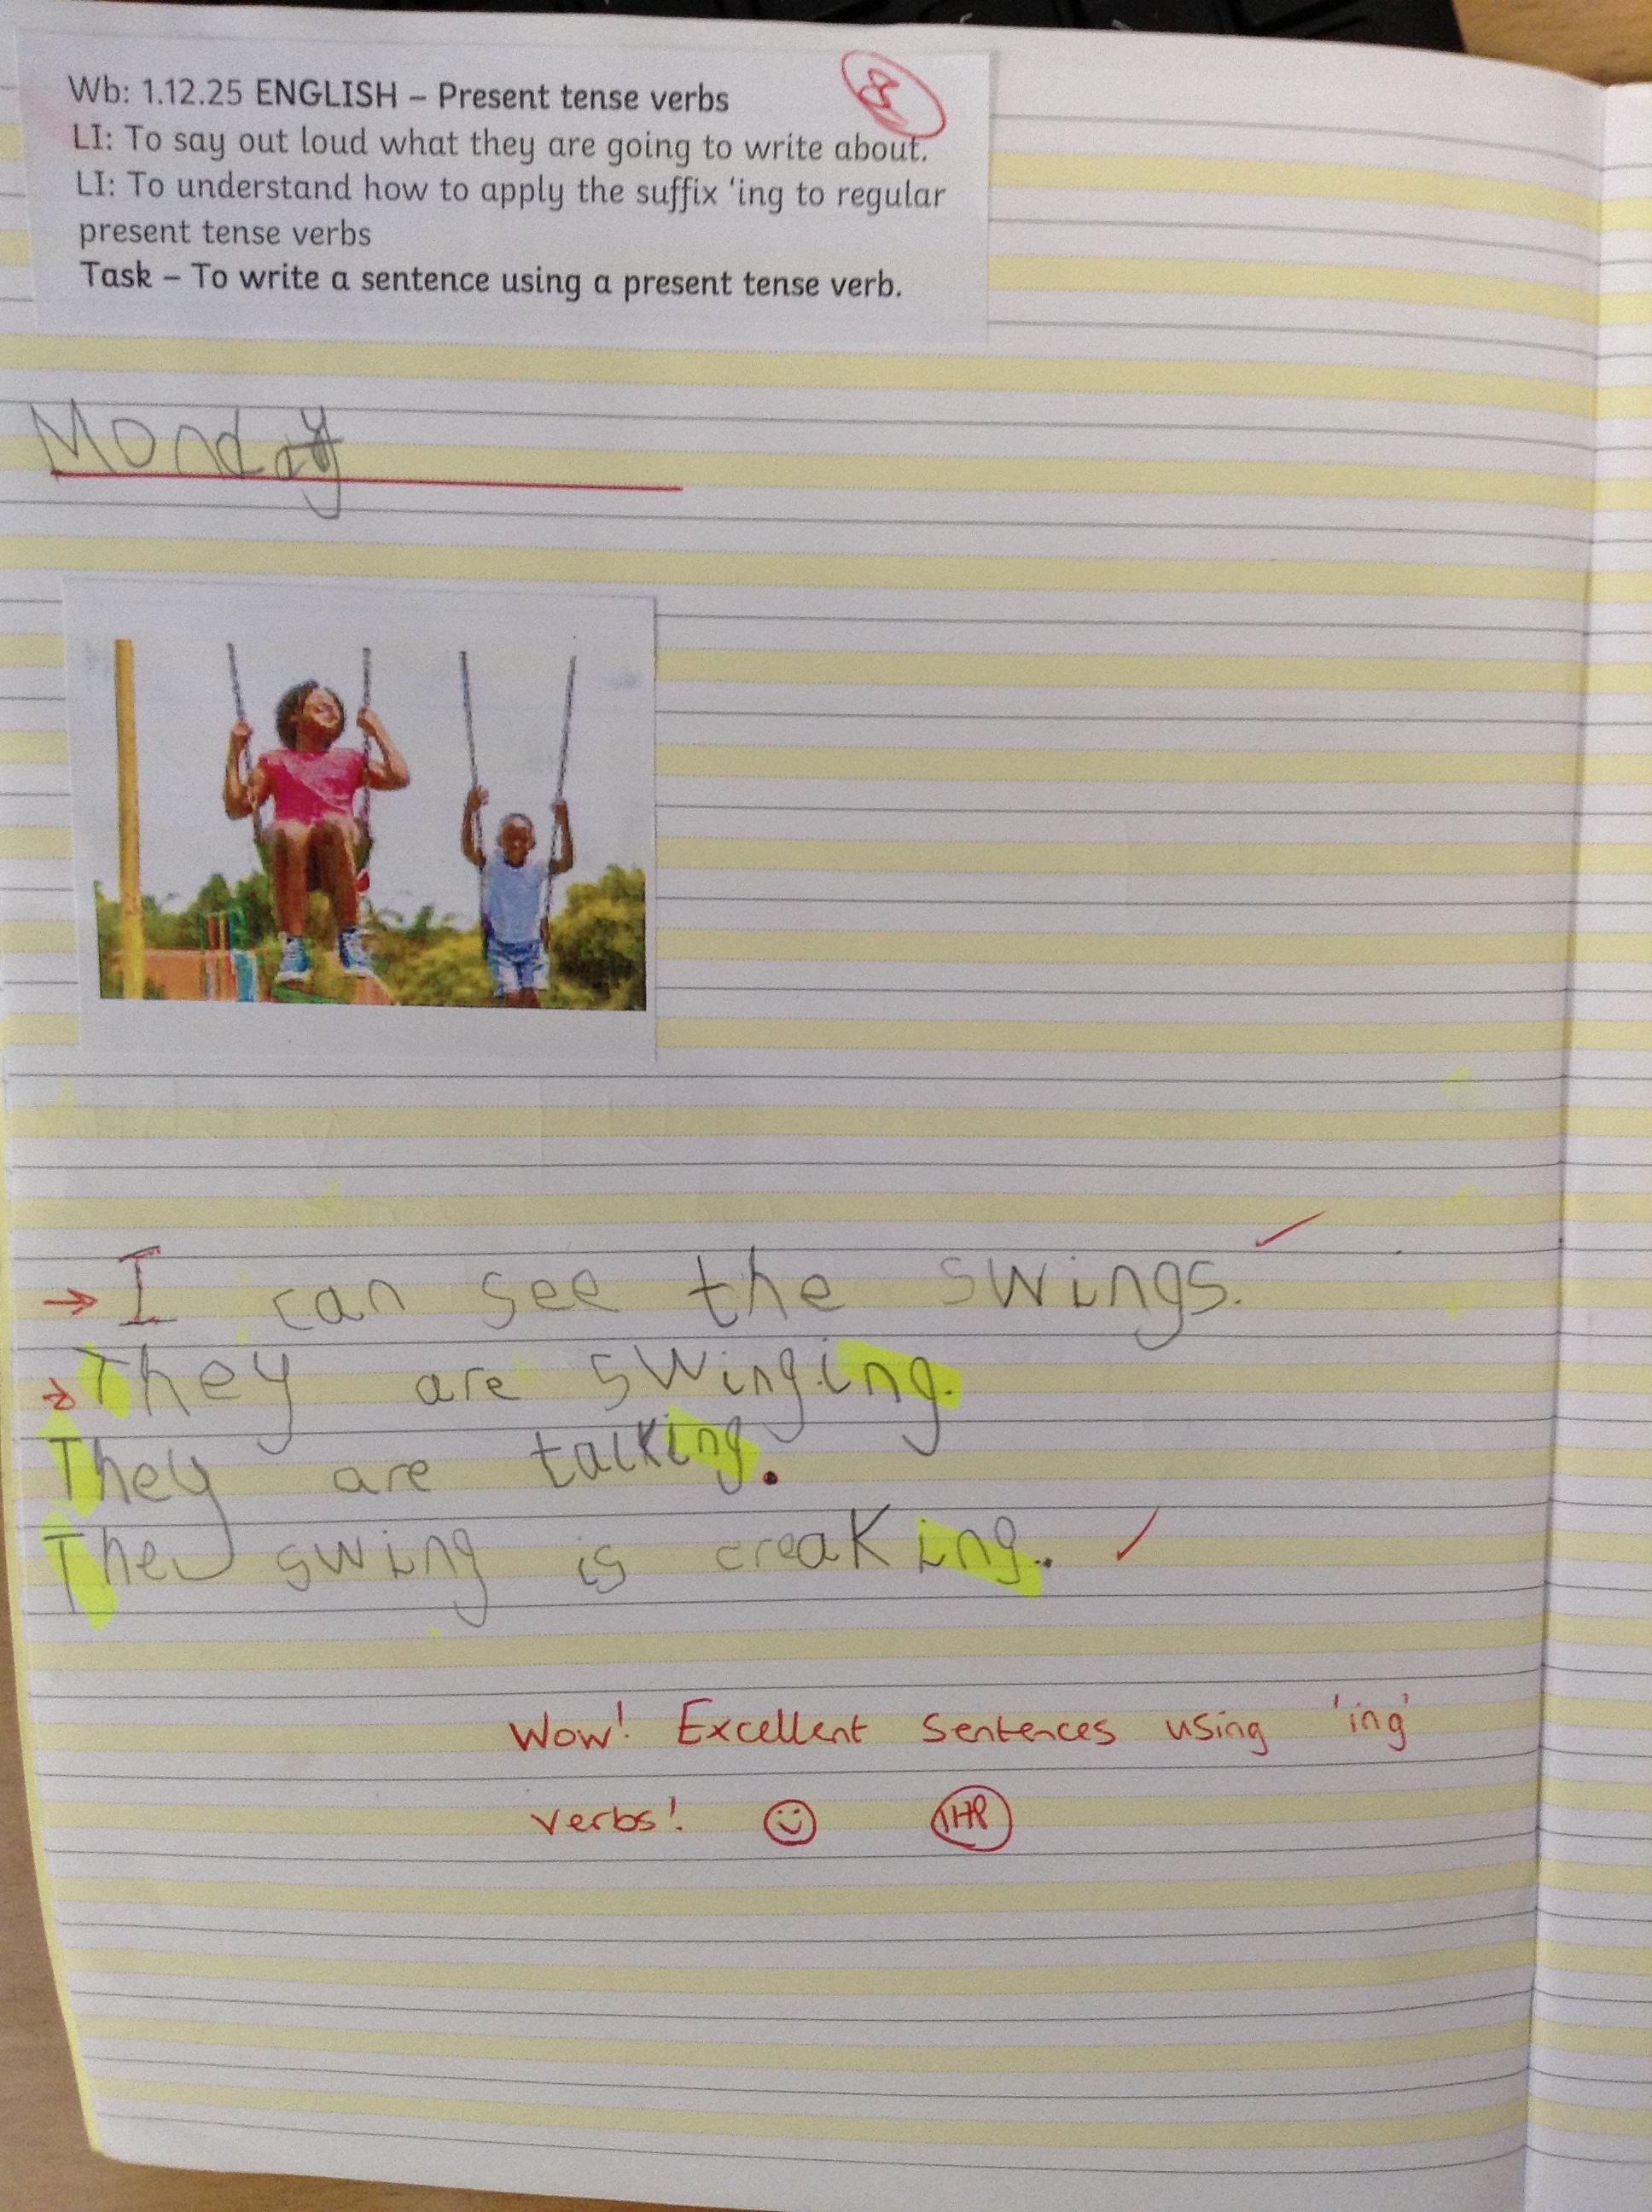 Wb: 1.12.25 ENGLISH – Present tense verbs
LI: To say out loud what they are going to write about.
LI: To understand how to apply the suffix 'ing to regular
present tense verbs
Task – To write a sentence using a present tense verb.
Monday
I can see the swings.
They are swinging.
They are talking.
The swing is creaking.
Wow! Excellent sentences using 'ing'
verbs!
1HP